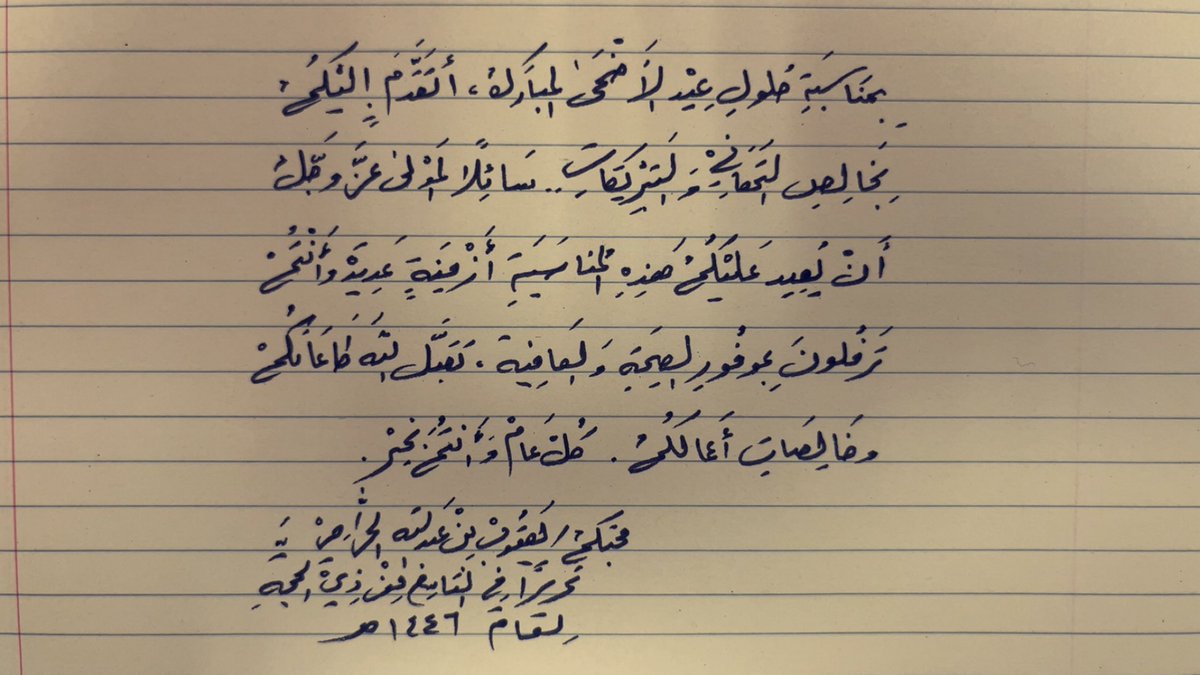 بِمُنَاسَبَةِ حُلولِ عِيْدِ الأَضْحَى المبَارَكْ، أتَقَدَّمَ إِليْكُمْ
بِخَالِصِ التَهَانِيْ وَالتَبْرِيْكَاتِ.. سَائِلًا المَوْلى عَزَّ وَجَلْ
أَنْ يُعِيدَ عَليْكُمْ هَذِهِ المُناسَبَةِ أَزْمِنَةٍ عَدِيدَةْ وَأَنْتُمْ
تَرفُلونَ بموفُورِ الصِحَةِ وَالعَافِية. تَقَبَّل اللَّه طَاعَاتكُمْ
وخَالِصَاتِ أَعمالكُمْ. كُلْ عَامْ وَأَنتُمْ بَخيْر.
محبكمْ / يَعقُوبْ بِنْ عَبدالله
تحريرًا في التاسِع مِنْ ذِيْ الحِجةِ
لِلعَامْ ١٤٤٦هـ